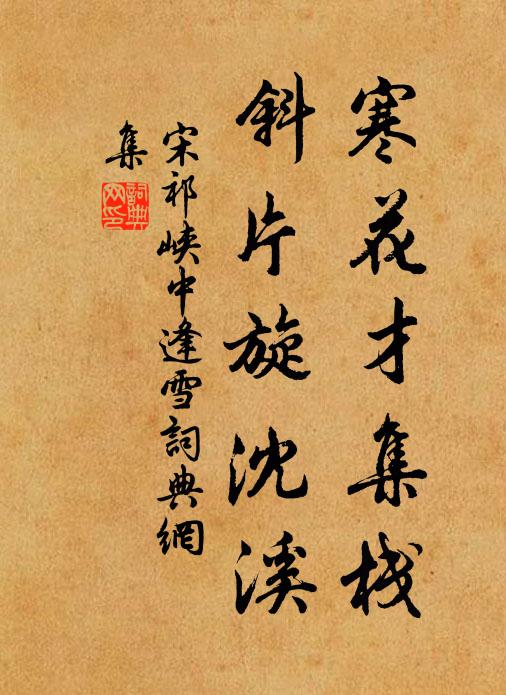 寒花才集栈
斜片旋沈溪
宋祁峡中逢雪詞典網
集
詞典
网印